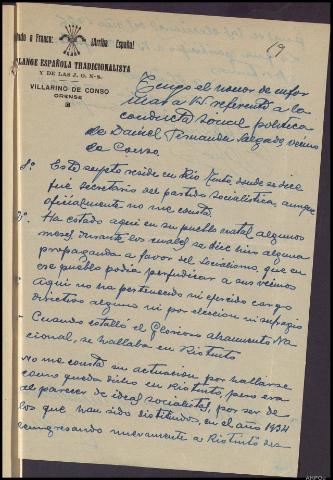 19
Saludo a Franco: ¡Arriba España!
FALANGE ESPAÑOLA TRADICIONALISTA
Y DE LAS J. O. N-S.
VILLARINO DE CONSO
ORENSE
Tengo el honor de infor
mar a Vd referente a la
conducta social politica
de Daniel Fernandez Salgado vecino
de Conso.
1º Este sujeto reside en Rio Tinto, donde se dice
fué secretario del partido socialista, aunque
oficialmente no me consta.
2º Ha estado aqui en su pueblo natal algunos
meses durante los cuales se dice hizo alguna
propaganda a favor del Socialismo, que en
ese pueblo podia perjudicar a sus vecinos
Aqui no ha pertenecido ni ejercido cargo
directivo alguno ni por eleccion ni sufragio
- Cuando estalló el Glorioso alzamiento Na
cional, se hallaba en Riotinto
No me consta su actuación por hallarse
como queda dicho en Riotinto, pero era
al parecer de ideas socialistas, por ser de
los que han sido destituidos, en el año 1934
reingresando nuevamente a Riotinto des